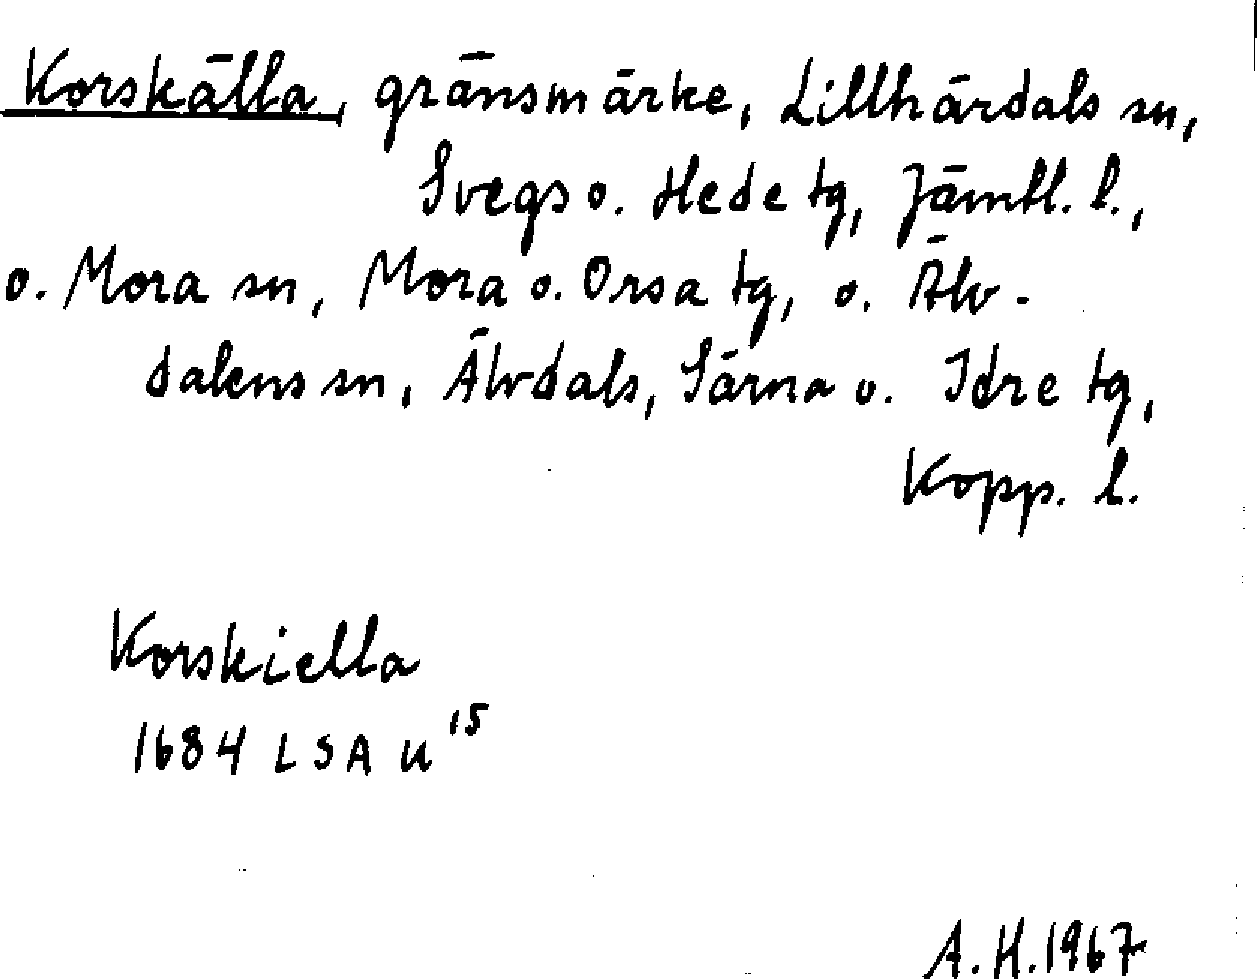 Korskälla, gränsmärke, Lillhärdals sn,
Svegs o. Hede tg, Jämtl. l.,
o. Mora sn, Mora o. Orsa tg, o. Älv-
dalens sn, Älvdals, Särna o. Idre tg,
Kopp. l.
Korskiella
1684 LSA U¹⁵
A.H.1967